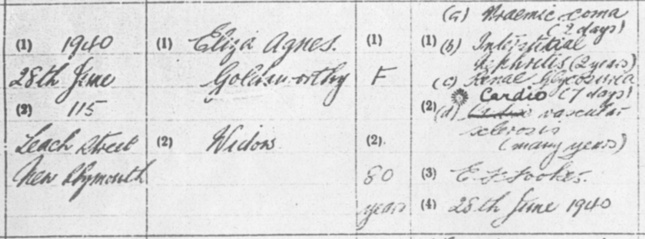 (1) 1940
28th June
(2) 115
Leach Street
New Plymouth
(1) Eliza Agnes.
Goldsworthy
(2) Widow
(1)
F
(2).
80
years
(a) Uraemic coma
(2 days)
(1) (b) Interstitial
Nephritis (2 years)
(c) Renal Glycosuria
Cardio (7 days)
(2) (d) vascular
sclerosis
(many years)
(3) E. F. Fookes.
(4) 28th June 1940